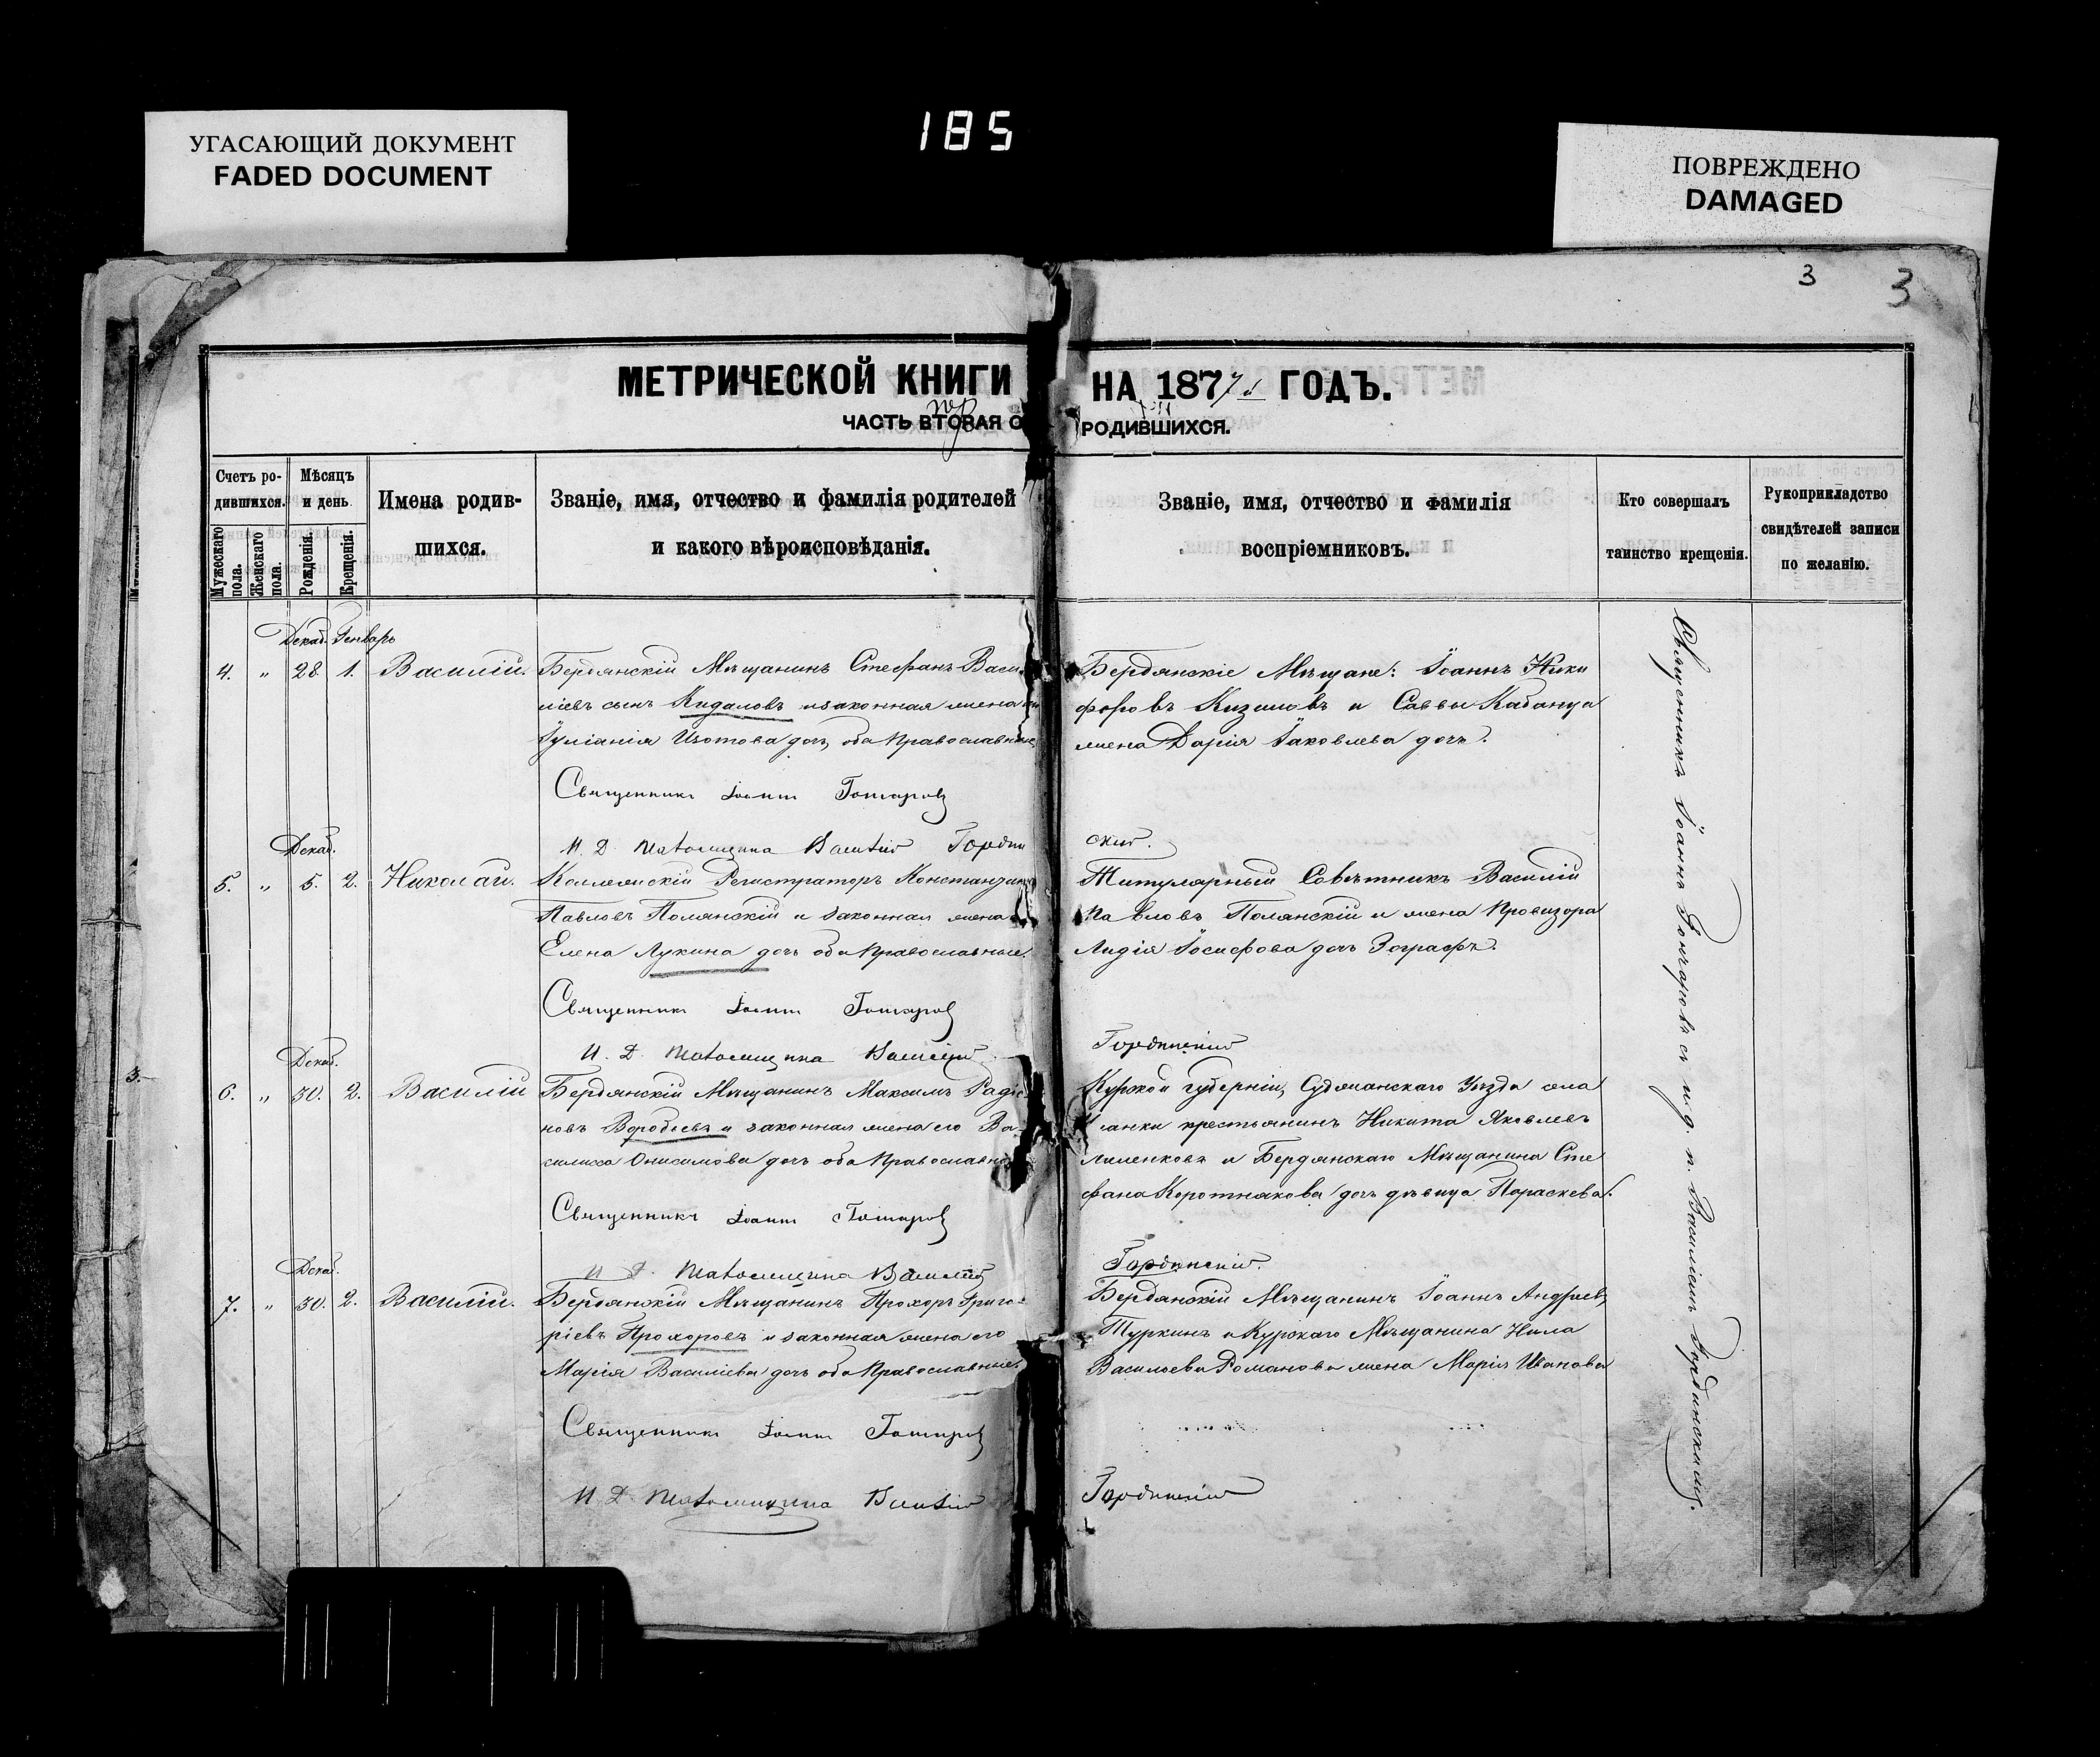 УГАСАЮЩИЙ ДОКУМЕНТ
FADED DOCUMENT
185
ПОВРЕЖДЕНО
DAMAGED
3 3
МЕТРИЧЕСКОЙ КНИГИ НА 1877 ГОДЪ.
ЧАСТЬ ВТОРАЯ О РОДИВШИХСЯ.
Счетъ ро-
дившихся.
Мужескаго пола.
Женскаго пола.
Мѣсяцъ
и день
Рожденія.
Крещенія.
Имена родив-
шихся.
Званіе, имя, отчество и фамилія родителей
и какого вѣроисповѣданія.
Званіе, имя, отчество и фамилія
воспріемниковъ.
Кто совершалъ
таинство крещенія.
Рукоприкладство
свидѣтелей записи
по желанію.
Декаб. Генварь
4. " 28. 1. Василій. Бердянскій Мѣщанинъ Стефанъ Васи-
ліевъ сынъ Кидаловъ и законная жена
Іуліанія Изотова дочь, оба Православные
Священникъ Іоаннъ Гончаровъ
Бердянскіе Мѣщане: Іоаннъ Ники
форовъ Кизиловъ и Саввы Кабанца
жена Дарія Іаковлева дочь.
Декаб.
И. Д. Псаломщика Василій Гордин
скій.
5. " 5. 2. Николай. Коллежскій Регистраторъ Константинъ
Павловъ Полянскій и законная жена
Елена Лукина дочь оба Православные.
Священникъ Іоаннъ Гончаровъ
Титулярный Совѣтникъ Василій
Павловъ Полянскій и жена Провизора
Лидія Іосифова дочь Зографъ.
Декаб.
И. Д. Псаломщика Василій
Гординскій
6. " 30. 2. Василій Бердянскій Мѣщанинъ Максимъ Радіо
новъ Воробьевъ и законная жена его Ва-
силиса Онисимова дочь оба Православные
Священникъ Іоаннъ Гончаровъ
Курской губерніи, Суджанскаго Уѣзда села
крестьянинъ Никита Яковлевъ
и Бердянскаго Мѣщанина Сте
фана Коротнякова дочь дѣвица Параскева.
Декаб.
И. Д. Псаломщика Василій
Гординскій.
7. " 30. 2. Василій. Бердянскій Мѣщанинъ Прохоръ Григо-
ріевъ Прохоровъ и законная жена его
Марія Василіева дочь оба Православные.
Священникъ Іоаннъ Гончаровъ
Бердянскій Мѣщанинъ Іоаннъ Андреев.
Туркинъ и Курскаго Мѣщанина Нила
Васильева Романова жена Марія Иванова
И. Д. Псаломщика Василій
Гординскій
Священникъ Іоаннъ Гончаровъ съ и. д. п. Василіемъ Гординскимъ.
3.